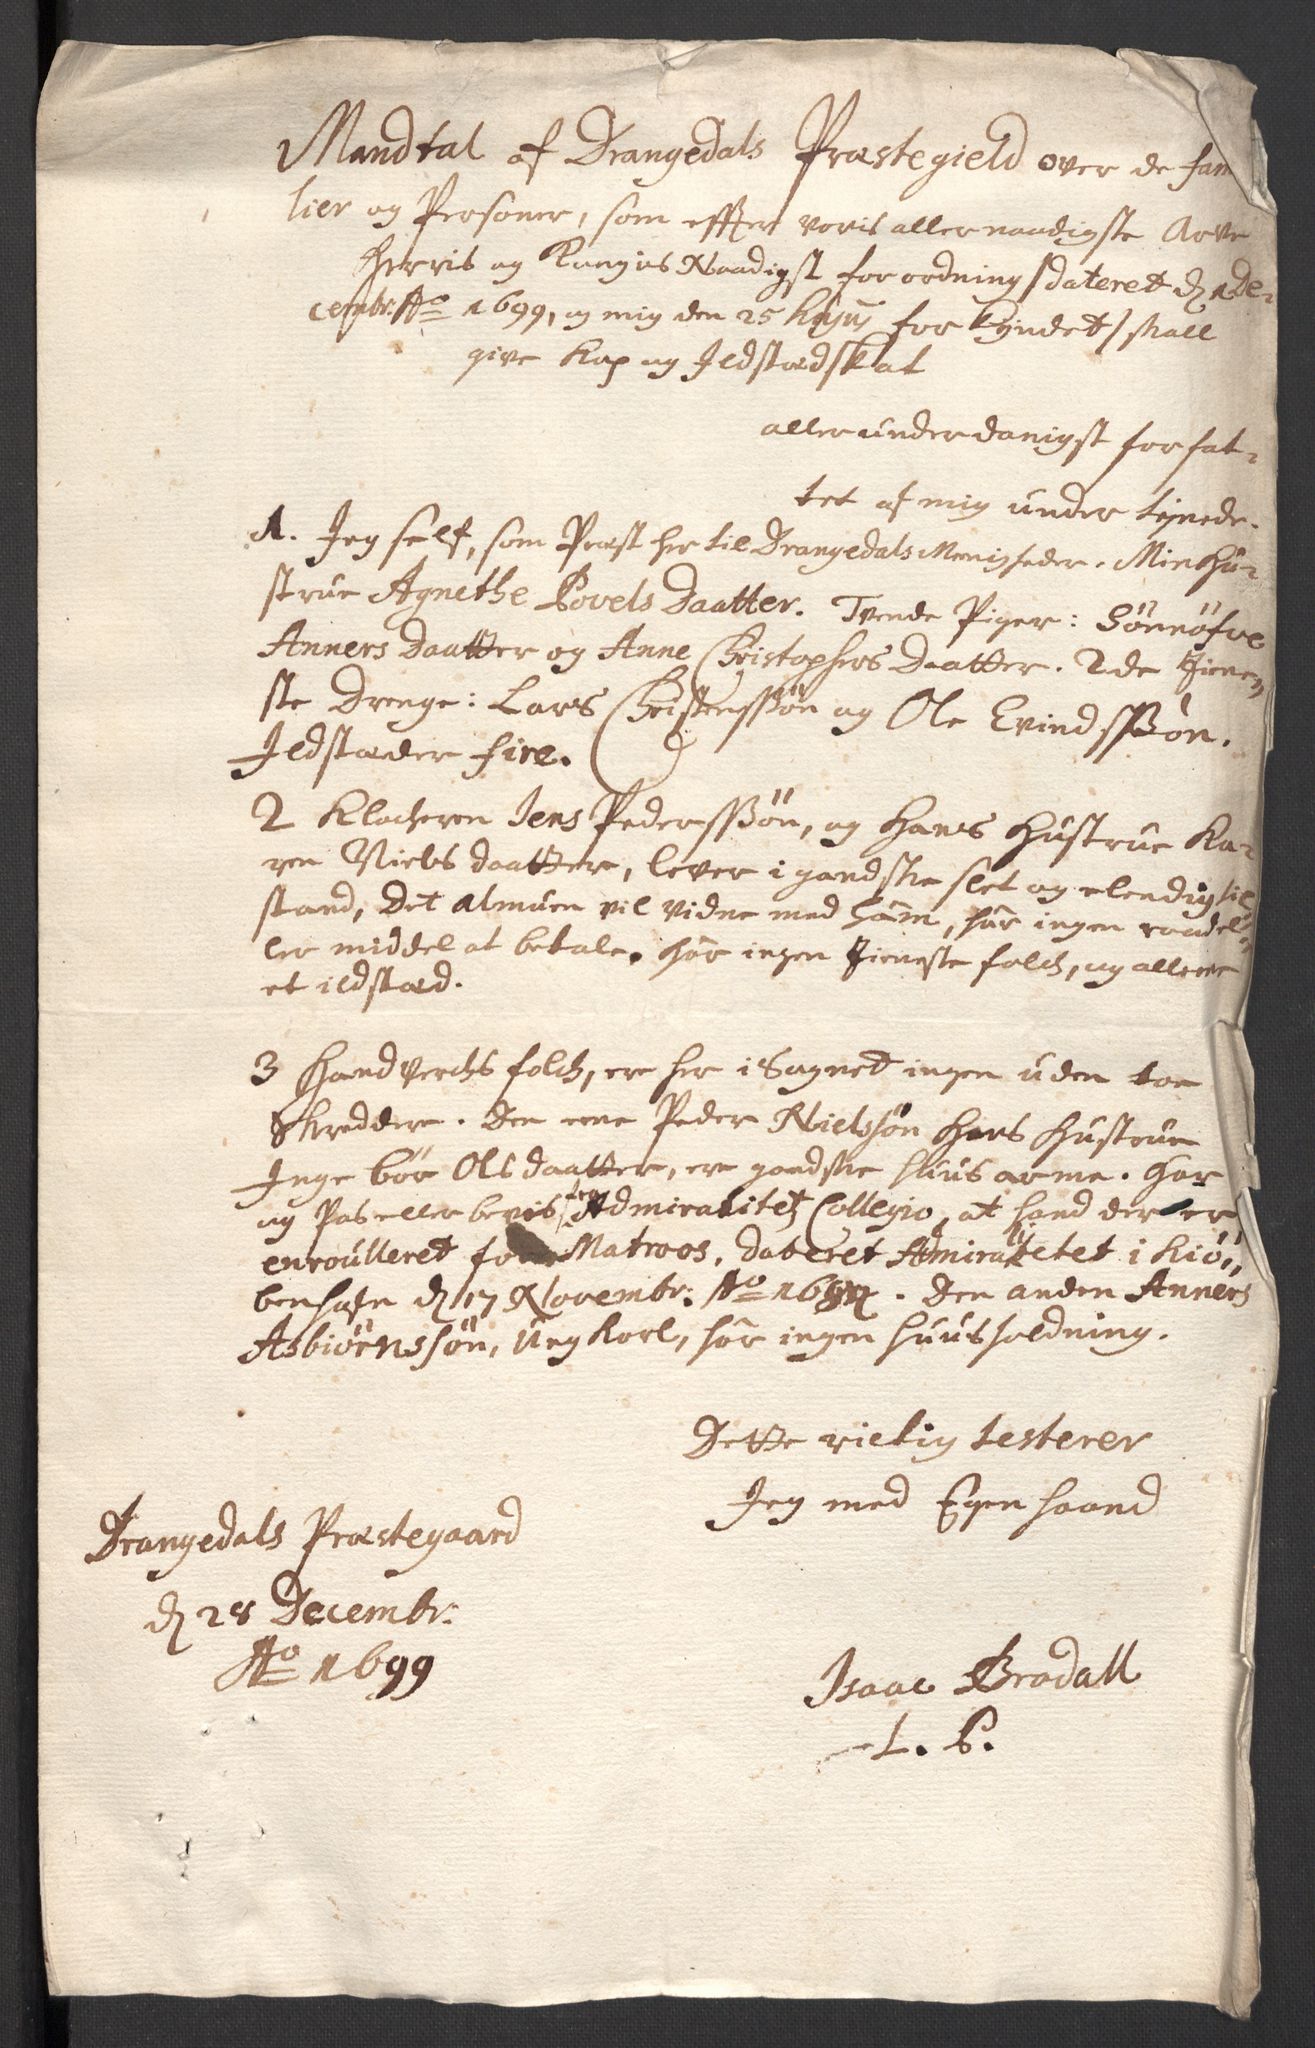 Mandtal af Drangedals Præstegield over de fam
lier og Personer, som effter voris allernaadigste Arve
Herris og Kongis Naadigst forordning /dateret dn 1 De-
cembr: Ao 1699, og mig den 25 hujus forkyndet/ skall
give Kop og Ildstædskat
allerunderdanigst forfat-
tet af mig under tegnede.
1. Jeg self, som Præst her til Drangedals Menigheder. Min hu-
strue Agnethe Povels Daatter. Tvende Piger: Sönnöfve
Anners Daatter og Anne Christophers Daatter. 2de tiene-
ste Drenge: Lars Christenssøn og Ole Evindssøn.
Ildstæder fire.
2 Klocheren Jens Pederssøn, og Hans Hustrue Ka-
ren Niels daatter, lever i gandske slet og elendig til
stand, Det almuen vil vidne med ham, har ingen raad el-
ler middel at betale. har ingen tieneste folch, og allene
et ildstæd.
3 Handverchs folch, ere her i Sognet ingen uden toe
Skreddere. Den eene Peder Nielssøn Hans Hustrue
Ingebör Olsdaatter, ere gandske huusarme. Har
og Pas eller bevis fra Admiralitet Collegio, at hand der er
enroulleret for Matroos, dateret Admiralitetet i Kiö-
benhafn dn 17 Novembr: Ao 169. Den anden Anners
Asbiörnssøn, ung Karl, har ingen huusholdning.
Dette rigtig testerer
Jeg med Egen haand
Drangedals Præstegaard
dn 28 Decembr:
Ao 1699
Isaac Bradall
L. S.